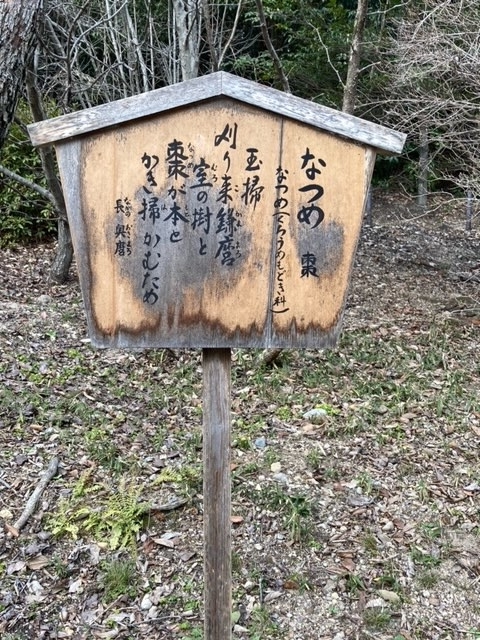 なつめ 棗
なつめ(くろうめもどき科)
玉掃
刈り来鎌麿
室の樹と
棗が本と
かき掃かむため
長 奥麿